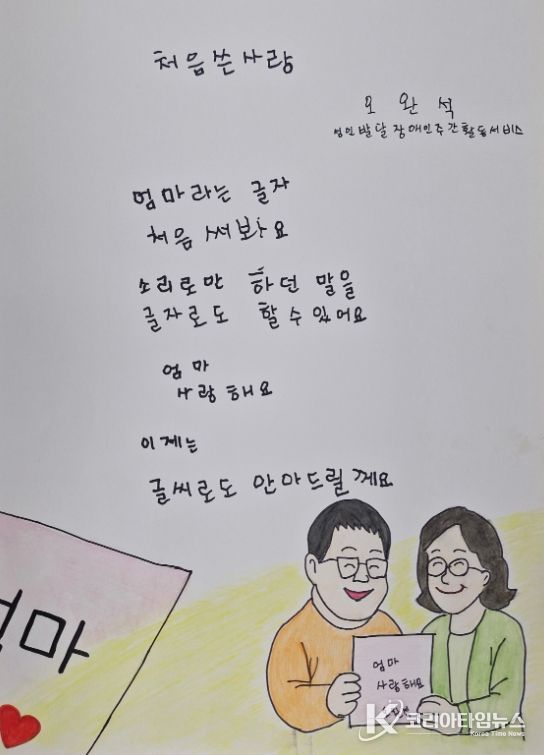 처음 쓴 사랑
오 완 석
성인발달장애인주간활동서비스
엄마라는 글자
처음 써봐요
소리로만 하던 말을
글자로도 할 수 있어요
엄마
사랑해요
이제는
글씨로도 안마드릴께요
엄마
엄마
사랑해요
코리아타임뉴스
Korea Time News